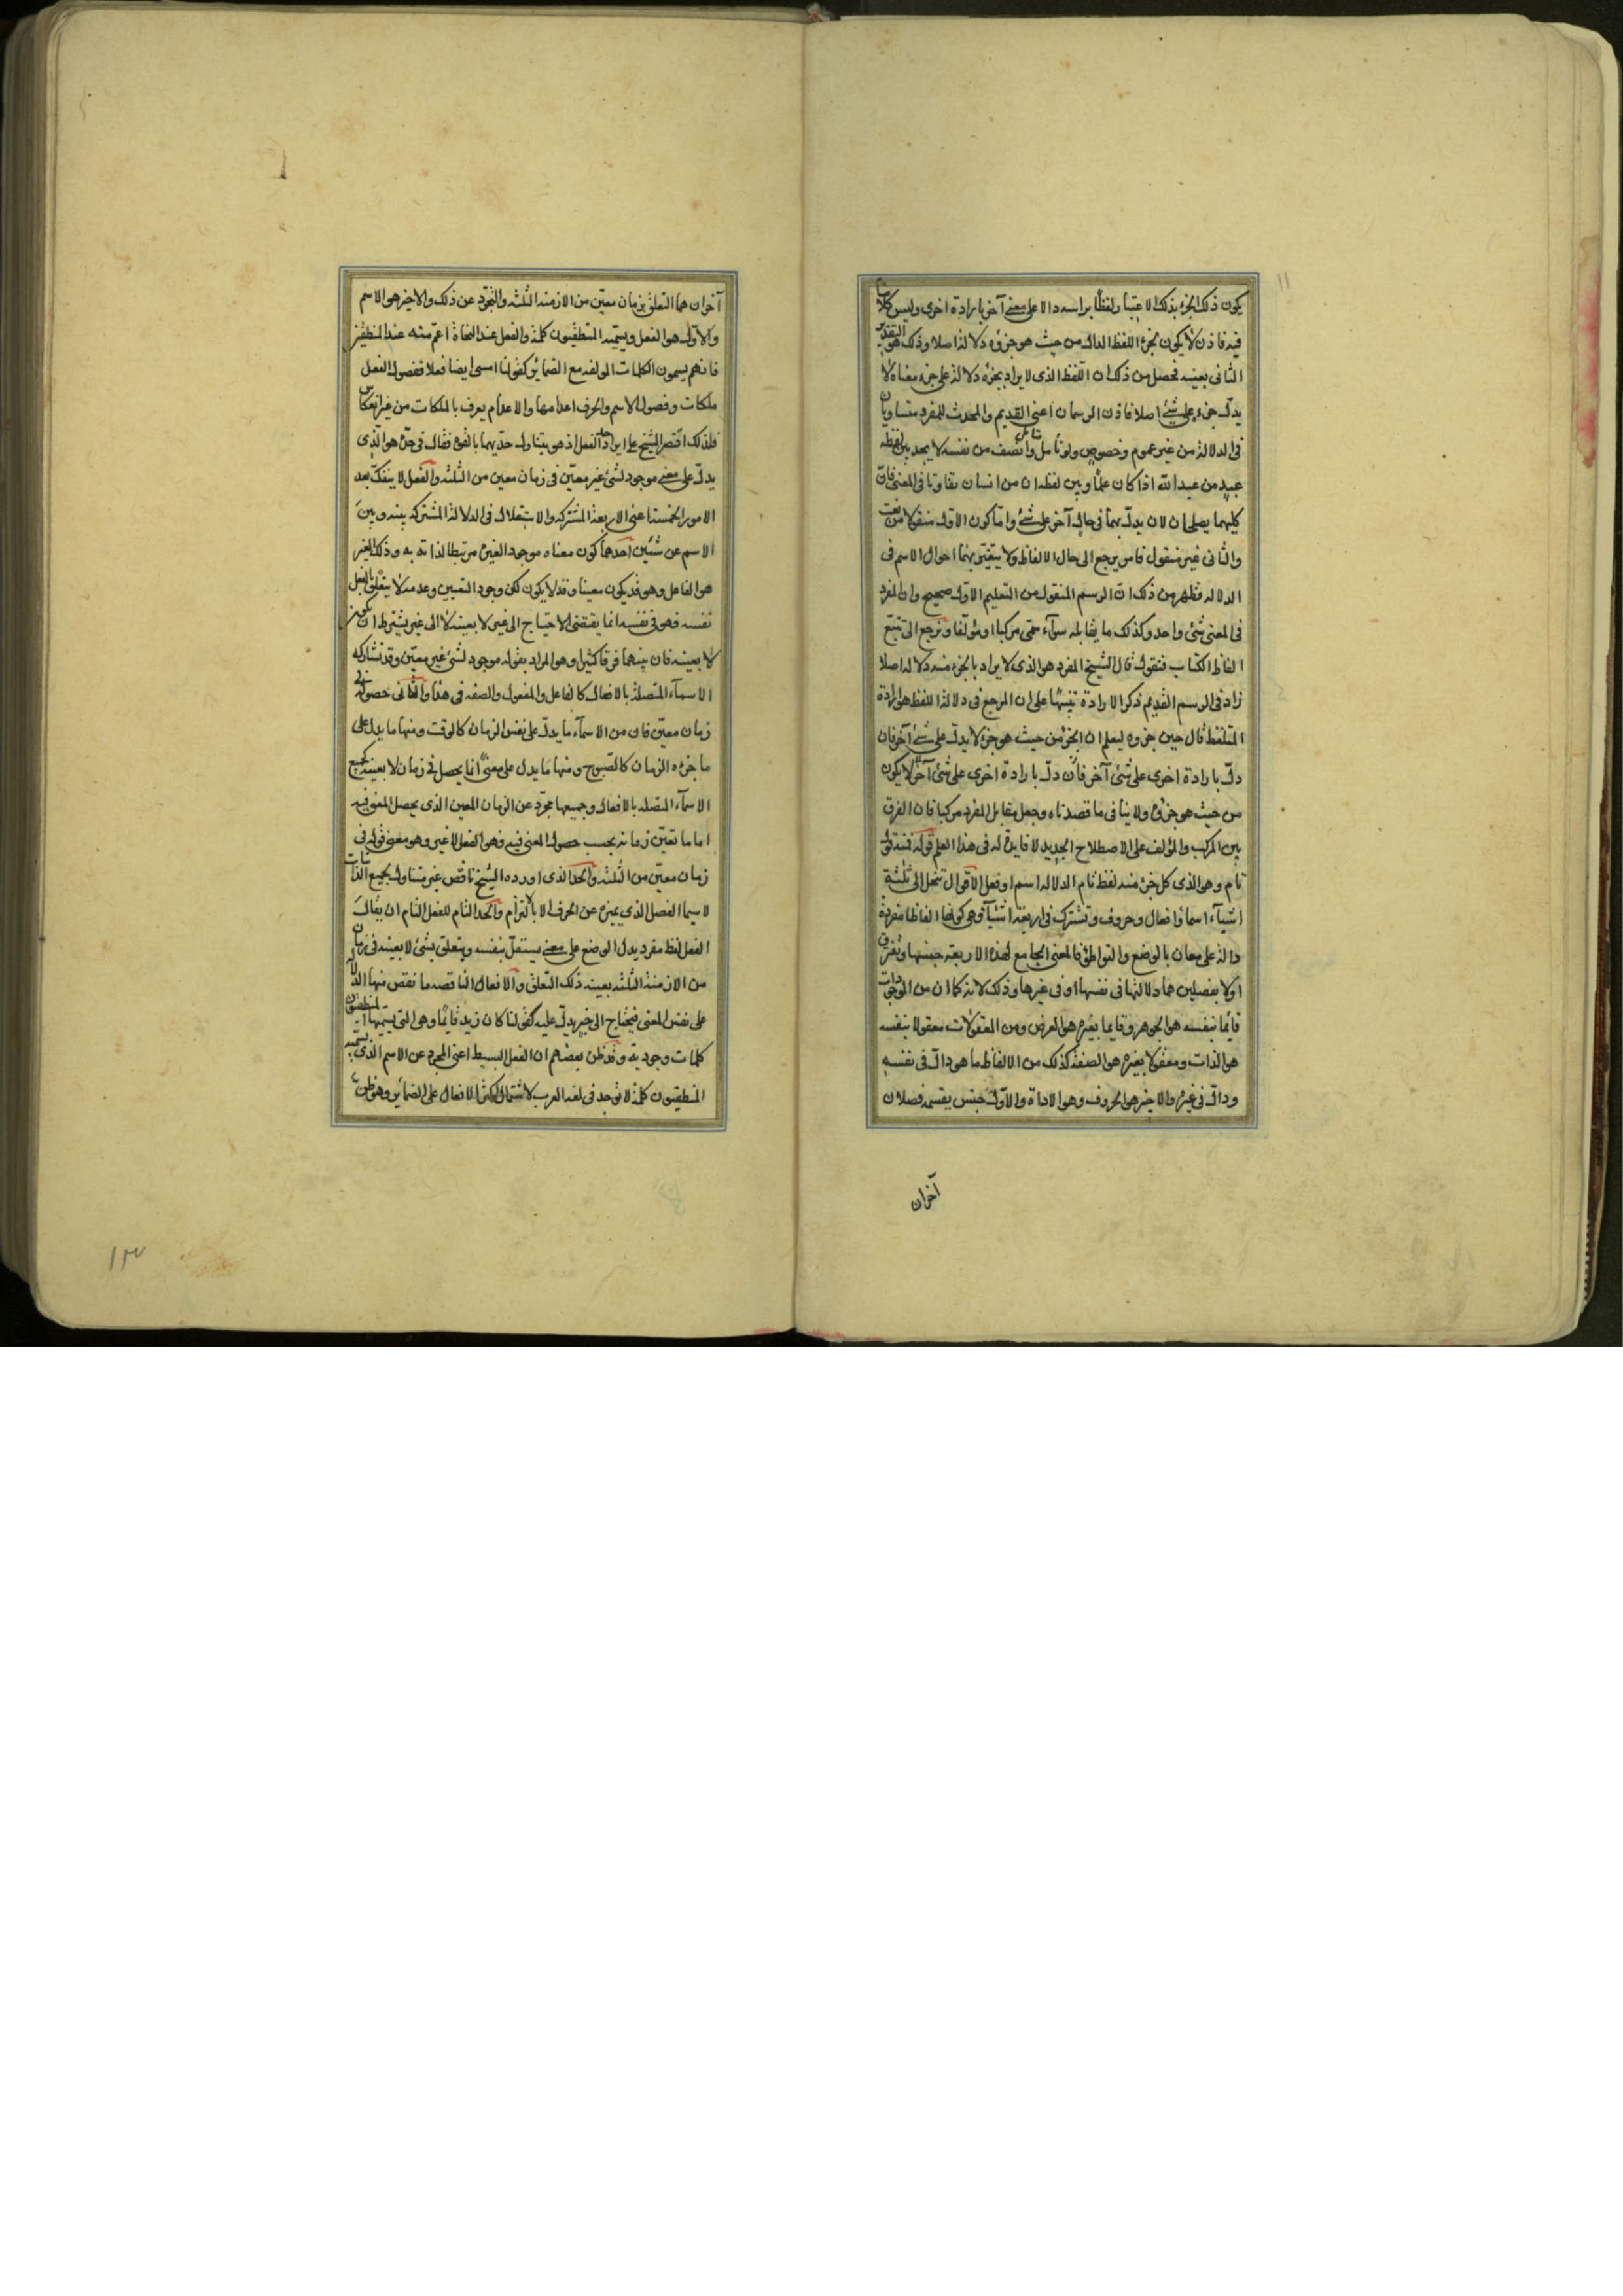 ١١
يكون ذلك الجزء بذلك الاعتبار لفظا براسه دالا على معنى آخر بارادة اخرى وليس كلامنا
فيه فاذن لا يكون لجزء اللفظ الدال من حيث هو جزؤه دلالة اصلا وذلك هو التقدير
الثانى بعينه فحصل من ذلك ان اللفظ الذى لا يراد بجزئه دلالة على جزء معناه لا
يدل جزءه على شئ اصلا فاذن الرسمان اعنى القديم والمحدث للمفرد متساويان
فى الدلالة من غير عموم وخصوص ولو تأمل متأمل وانصف من نفسه لا يجد بين لفظة
عبد من عبد الله اذا كان علما وبين لفظه ان من انسان تفاوتا فى المعنى فان
كليهما يصلحان لان يدل بهما فى حال آخر على شئ واما كون الاول منقولا من نعت
والثانى غير منقول فامر يرجع الى حال الالفاظ ولا يتغير بهما احوال الاسم فى
الدلاله فظهر من ذلك ان الرسم المنقول من التعليم الاول صحيح وان المفرد
فى المعنى شئ واحد وكذلك ما يقابله سوآء سمى مركبا او مؤلفا ونرجع الى تتبع
الفاظ الكتاب فنقول قال الشيخ المفرد هو الذى لا يراد بالجزء منه دلاله اصلا
زاد فى الرسم القديم ذكر الارادة تنبيها على ان المرجع فى دلالة اللفظ هو ارادة
المتلفظ قال حين جزوه ليعلم ان الجزء من حيث هو جزء لا يدل على شئ آخر فان
دل بارادة اخرى على شئ آخر فان دل بارادة اخرى على شئ آخر لا يكون
من حيث هو جزؤه ولا ينافى ما قصدناه وجعل مقابل المفرد مركبا فان الفرق
بين المركب والمؤلف على الاصطلاح الجديد لا فايدة له فى هذا العلم قوله فمنه قول
تام وهو الذى كل جزء منه لفظ تام الدلاله اسم او فعل الاقوال تنحل الى ثلثة
اشيآء اسما وافعال وحروف وتشترك فى اربعة اشيآء وهى كونها الفاظا مفردة
دالة على معان بالوضع والتواطئ فالمعنى الجامع لهذه الاربعة جنسها وتفترق
اولا بفصلين هما دلالتها فى نفسها او فى غيرها وذلك لانه كما ان من الموجودات
قائما بنفسه هو الجوهر وقايما بغيره هو العرض ومن المعقولات معقولا بنفسه
هو الذات ومعقولا بغيره هو الصفة كذلك من الالفاظ ما هو دال فى نفسه
ودال فى غيره والاخير هو الحروف وهو الاداة والاول جنس يقسمه فصلان
آخران
آخران هما التعلق بزمان معين من الازمنة الثلثه والتجرد عن ذلك والاخير هو الاسم
والاول هو الفعل ويسميه المنطقيون كلمة والفعل عند النحاة اعم منه عند المنطقيين
فانهم يسمون الكلمات المولفه مع الضمائر كقولنا امشى ايضا فعلا ففصول الفعل
ملكات وفصول الاسم والحرف اعدامها والاعدام يعرف بالملكات من غير انعكاس
فلذلك اقتصر الشيخ على ايراد حد الفعل اذ هو يتناول حديهما بالقوة فقال فى حده هو الذى
يدل على معنى موجود لشئ غير معين فى زمان معين من الثلثه والفعل لا ينفك بعد
الامور الخمسة اعنى الاربعة المشتركه والاستقلال فى الدلالة المشتركه بينه وبين
الاسم عن شئين احدهما كون معناه موجود الغيره مرتبطا لذاته به وذلك الغير
هو الفاعل وهو قد يكون معينا وقد لا يكون لكن وجود التعيين وعدمه لا يتعلق بالفعل
نفسه فهو فى نفسه انما يقتضى الاحتياج الى غير لا بعينه لا الى غير يشترط ان يكون
لا بعينه فان بينهما فرقا كثيرا وهو المراد بقوله موجود لشئ غير معين وقد تشاركه
الاسمآء المتصلة بالافعال كالفاعل والمفعول والصفه فى هذا والثانى حصوله فى
زمان معين فان من الاسمآء ما يدل على نفس الزمان كالوقت ومنها ما يدل على
ما جزءه الزمان كالصبوح ومنها ما يدل على معنى انما يحصل فى زمان لا بعينه كجميع
الاسمآء المتصله بالافعال وجميعها مجرد عن الزمان المعين الذى يحصل المعنى فيه
اما ما تعين زمانه بحسب حصول المعنى فيه وهو الفعل لا غير وهو معنى قوله فى
زمان معين من الثلثه والحد الذى اورده الشيخ ناقص غير متناول لجميع الذاتيات
لا سيما الفصل الذى يميزه عن الحرف الا بالالتزام والحد التام للفعل التام ان يقال
الفعل لفظ مفرد يدل بالوضع على معنى يستقل بنفسه ويتعلق بشئ لا بعينه فى زمان
من الازمنة الثلثه بعينه ذلك التعلق والافعال الناقصه ما نقص منها الدلالة
على نفس المعنى فيحتاج الى خبر يدل عليه كقولنا كان زيد قائما وهى التى يسميها المنطقيون
كلمات وجوديه وقد ظن بعضهم ان الفعل البسيط اعنى المجرد عن الاسم الذى يسميه
المنطقيون كلمة لا توجد فى لغة العرب لاشتمال اكثر الافعال على الضمائر وهو ظن